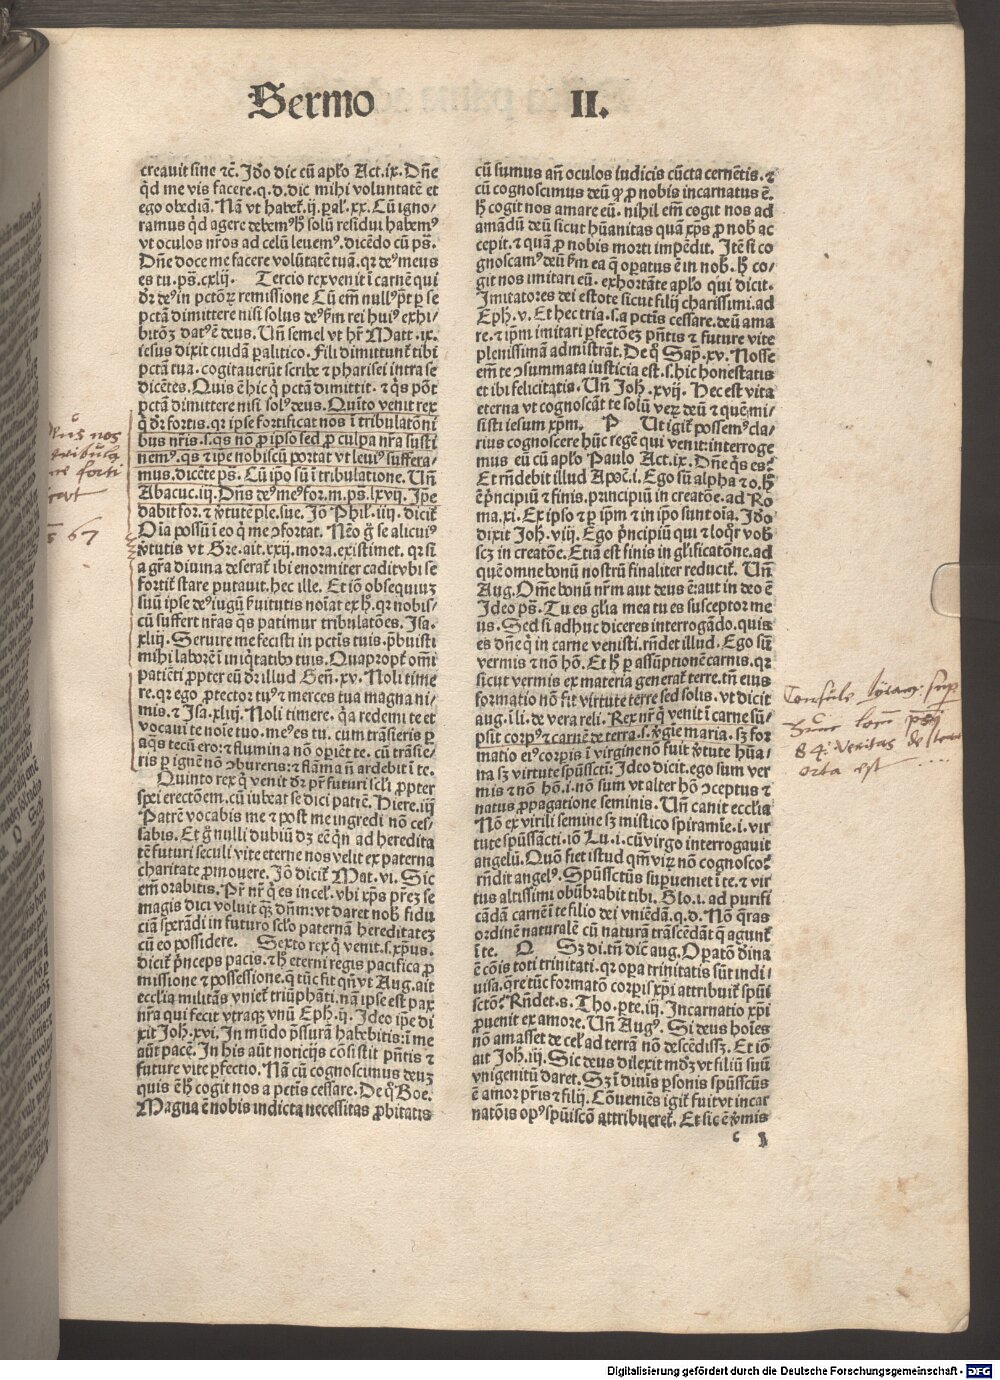 Sermo II.
creauit sine ⁊c̄. Jdo dic cū aplo Act.ix. Dn̄e
qd me vis facere.q.d.dic mihi voluntatē et
ego obediā. Nā vt habet̄.ij.pal̓.xx. Cū igno⸗
ramus qd agere debem⁹ hͦ solū residui habem⁹
vt oculos nr̄os ad celū leuem⁹.dicēdo cū ps̄.
Dn̄e doce me facere volūtatē tuā.qr de⁹ meus
es tu.ps̄.cxlij. Tercio rex venit ī carnē qui
dr̄ de⁹ in pctōꝝ remissione Cū em̄ null⁹ pt̄ ꝑ se
pctā dimittere nisi solus de⁹ ẜm rei hui⁹ exhi⸗
bitōꝫ dat⁹ ē deus. Vn̄ semel vt hr̄ Matt.ix.
iesus dixit cuidā ꝑalitico. Fili dimittunt̄ tibi
pctā tua. cogitauerūt scribe ⁊ pharisei intra se
dicētes. Quis ē hic q̄ pctā dimittit. ⁊ qs pōt
pctā dimittere nisi sol⁹ deus. Quīto venit rex
q̄ dr̄ fortis. qr ipse fortificat nos ī tribulatōni
bus nr̄is.s.qs nō ꝓ ipso sed ꝓ culpa nr̄a susti
nem⁹.qs ⁊ ip̄e nobiscū portat vt leui⁹ suffera⸗
mus.dicēte ps̄. Cū ip̄o sū ī tribulatione. Vn̄
Abacuc.iij. Dn̄s de⁹ me⁹ for.m.ps̄.lxvij. Ip̄e
dabit for.⁊ v̓tutē ple.sue. Jō Phil̓.iiij. dicit̄
Oīa possū ī eo q̄ me ↄfortat. Nēo g̊ se alicui⁹
v̓tutis vt Gre.ait.xxij.mora.existimet. qr si
a gr̄a diuina deserat̄ ibi enormiter cadit vbi se
fortit̄ stare putauit.hec ille. Et iō obsequiuꝫ
suū ipse de⁹ iugū ẜuitutis noīat ex hͦ.qr nobis⸗
cū suffert nr̄as qs patimur tribulatōes. Isa.
xliij. Seruire me fecisti in pctīs tuis.p̄buisti
mihi laborē ī iniq̄tatibꝰ tuis. Quapropt̄ om̄i
patiēti ꝓpter eū dr̄ illud Gen̄.xv. Noli time
re.qr ego ꝓtector tu⁹ ⁊ merces tua magna ni⸗
mis.⁊ Isa.xliij. Noli timere. q̄a redemi te et
vocaui te noīe tuo.me⁹ es tu. cum trāsieris ꝑ
aq̄s tecū ero:⁊ flumina nō oꝑiēt te. cū trāsie⸗
ris ꝑ ignē nō ↄbureris:⁊ flāma n̄ ardebit ī te.
Quinto rex q̄ venit dr̄ pr̄ futuri scl̓i ꝓpter
spei erectōem.cū iubeat se dici patrē. Hiere.iij
Patrē vocabis me ⁊ post me ingredi nō ces⸗
sabis. Et g̊ nulli dubiū dꝫ eē qn̄ ad heredita
tē futuri seculi vite eterne nos velit ex paterna
charitate ꝓmouere. Jō dicit̄ Mat.vi. Sic
em̄ orabitis. Pr̄ nr̄ q̄ es in cel̓.vbi xp̄s pr̄eꝫ se
magis dici voluit q̄ꝫ dn̄m:vt daret nob̄ fidu
ciā sperādi in futuro sclo paternā hereditateꝫ
cū eo possidere. Sexto rex q̄ venit.s.xp̄us.
dicit̄ p̄nceps pacis.⁊ hͦ eterni regis pacifica ꝓ
missione ⁊ possessione.q̄ tūc fit qn̄ vt Aug.ait
ecclīa militās vniet̄ triūphāti.nā ipse est pax
nr̄a qui fecit vtraqꝫ vnū Eph.ij. Ideo ip̄e di
xit Joh̄.xvi. In mūdo p̄ssurā habebitis:ī me
aūt pacē. In his aūt noticijs cōsistit pn̄tis ⁊
future vite ꝑfectio. Nā cū cognoscimus deuꝫ
quis ē hͦ cogit nos a pctīs cessare. De q̄ Boe.
Magna ē nobis indicta necessitas ꝓbitatis
cū sumus an̄ oculos iudicis cūcta cernētis.⁊
cū cognoscimus deū q̄ ꝓ nobis incarnatus ē.
hͦ cogit nos amare eū. nihil em̄ cogit nos ad
amādū deū sicut hūanitas quā xp̄s ꝓ nob̄ ac
cepit.⁊ quā ꝓ nobis morti impēdit. Itē si co
gnoscam⁹ deū ẜm ea q̄ oꝑatus ē in nob̄. hͦ co⸗
git nos imitari eū. exhortāte aplo qui dicit.
Imitatores dei estote sicut filij charissimi.ad
Eph.v. Et hec tria.s.a pctīs cessare.deū ama
re.⁊ ip̄m imitari ꝑfectōeꝫ pn̄tis ⁊ future vite
plenissimā admistrāt. De q̄ Sap̄.xv. Nosse
em̄ te ↄsummata iusticia est.s.hic honestatis
et ibi felicitatis. Vn̄ Joh̄.xvij. Hec est vita
eterna vt cognoscāt te solū veꝝ deū ⁊ quē mi⸗
sisti iesum xp̄m. P Vt igit̄ possem⁹ cla⸗
rius cognoscere hūc regē qui venit:interroge
mus eū cū aplo Paulo Act.ix. Dn̄e q̄s es?
Et rn̄debit illud Apoc̄.i. Ego sū alpha ⁊ o.hͦ
ē p̄ncipiū ⁊ finis.principiū in creatōe.ad Ro
ma.xi. Ex ipso ⁊ ꝑ ip̄m ⁊ in ip̄o sunt oīa. Jdo
dixit Joh̄.viij. Ego p̄ncipiū qui ⁊ loq̄r vob̄
scꝫ in creatōe. Etiā est finis in gl̓ificatōne.ad
quē omne bonū nostrū finaliter reducit̄. Vn̄
Aug. Om̄e bonū nr̄m aut deus ē:aut in deo ē
Ideo ps̄. Tu es glīa mea tu es susceptor me
us. Sed si adhuc diceres interrogādo.quis
es dn̄e q̄ in carne venisti.rn̄det illud. Ego sū
vermis ⁊ nō hō. Et hͦ ꝑ assūptionē carnis.qr
sicut vermis ex materia generat̄ terre.tn̄ eius
formatio nō fit virtute terre sed solis.vt dicit
aug.ī li.de vera reli. Rex nr̄ q̄ venit ī carne sū⸗
psit corp⁹ ⁊ carnē de terra.s.v̓gie maria. sꝫ for
matio ei⁹ corpis ī virgine nō fuit v̓tute hūa⸗
na sꝫ virtute spūsscti: Ideo dicit.ego sum ver
mis ⁊ nō hō.i.nō sum vt alter hō ↄceptus ⁊
natus ꝓpagatione seminis. Vn̄ canit ecclīa
Nō ex virili semine sꝫ mistico spiramīe.i.vir
tute spūssācti.iō Lu.i.cū virgo interrogauit
angelū. Quō fiet istud qm̄ viꝝ nō cognosco?
rn̄dit angel⁹. Spūssctūs suꝑueniet ī te.⁊ vir
tus altissimi obūbrabit tibi. Glo.i.ad purifi
cādā carnē ī te filio dei vniēdā.q.d. Nō q̄ras
ordinē naturalē cū naturā trāscēdāt q̄ agunt̄
ī te. Q Sꝫ di.tn̄ dic aug. Oꝑatō diīna
ē cōis toti trinitati.qr opa trinitatis sūt indi⸗
uisa.qr̄e tūc formatō corpis xp̄i attribuit̄ spūi
sctō? Rn̄det.s. Tho.ꝑte.iij. Incarnatio xp̄i
ꝓuenit ex amore. Vn̄ Aug⁹. Si deus hoīes
nō amasset de cel̓ ad terrā nō descēdissꝫ. Et iō
ait Joh̄.iij. Sic deus dilexit mdꝫ vt filiū suū
vnigenitū daret. Sꝫ ī diuīs ꝑsonis spūsscūs
ē amor pr̄is ⁊ filij. Cōueniēs igit̄ fuit vt incar
natōis op⁹ spūiscō attribueret̄. Et sic ē v̓mis
c j
nos
67
Consule
84. veritas de terra
orta est
Digitalisierung gefördert durch die Deutsche Forschungsgemeinschaft - DFG